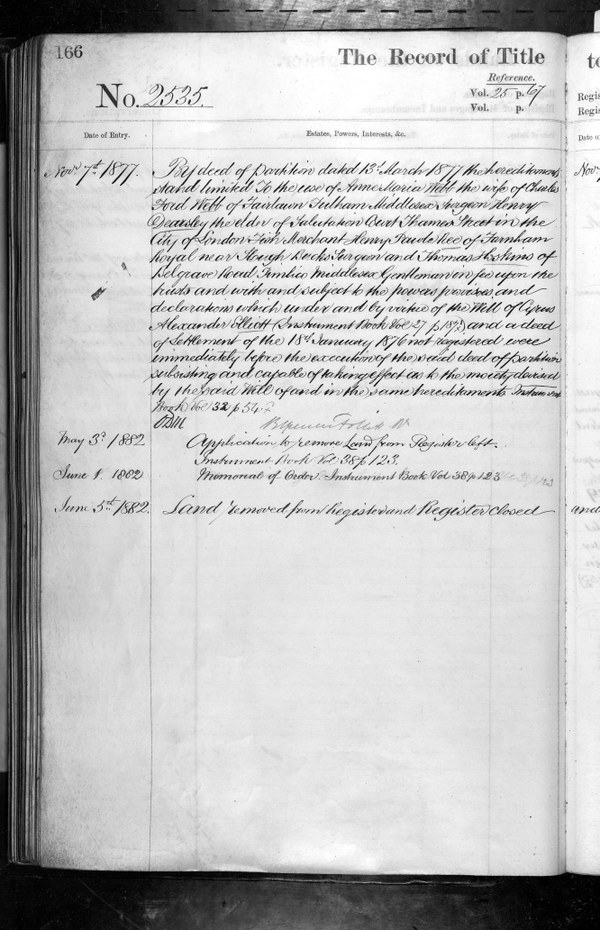 166
The Record of Title
Reference.
No. 2535.
Vol. 25 p. 67
Vol. p.
Date of Entry.
Estates, Powers, Interests, &c.
Novr 7th 1877.
By deed of partition dated 13th March 1877 the hereditaments
stand limited To the use of Anne Maria Webb the wife of Charles
Ford Webb of Fairlawn Fulham Middlesex Surgeon Henry
Dearsley the elder of Salutation Court Thames Street in the
City of London Fish Merchant Henry Reade Kee of Farnham
Royal near Slough Bucks Surgeon and Thomas Hoskins of
Belgrave Road Pimlico Middlesex Gentleman in fee upon the
trusts and with and subject to the powers provisoes and
declarations which under and by virtue of the Will of Cyrus
Alexander Elliott (Instrument Book Vol 27 p 187) and a deed
of Settlement of the 18th January 1876 not registered were
immediately before the execution of the said deed of partition
subsisting and capable of taking effect as to the moiety devised
by the said Will of and in the same hereditaments Instrument
Book Vol 32 p 54.
May 3d 1882
Application to remove Land from Register left.
Instrument Book Vol 38 p 123.
June 1. 1882
Memorial of Order. Instrument Book Vol 38 p 123
June 5th 1882.
Land removed from Register and Register closed
to
Regis
Regis
Date o
Nov
and